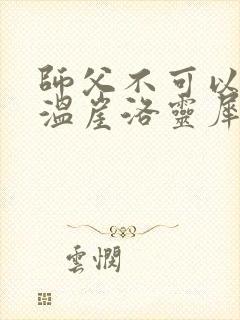 師父不可以
溫崖洛靈犀
雲憫